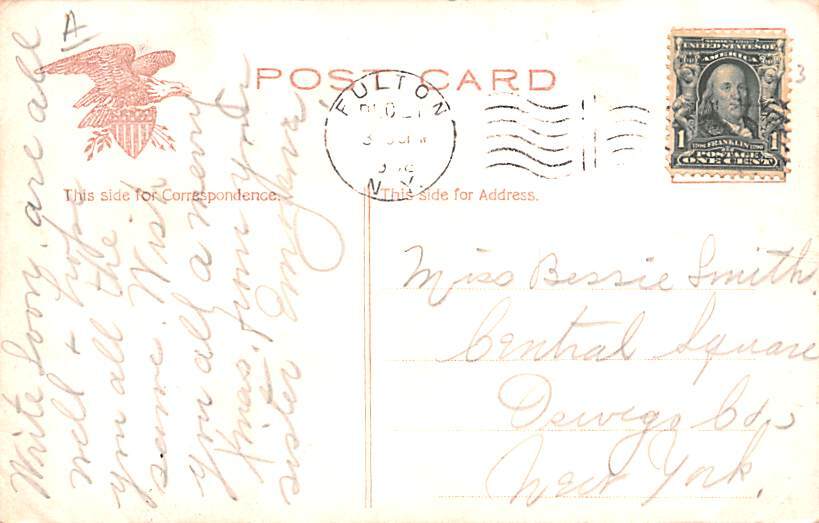 A
POST CARD
FULTON
N.Y.
SERIES 1902
UNITED STATES OF
AMERICA
1 FRANKLIN 1
POSTAGE
ONE CENT
3
This side for Correspondence.
This side for Address.
Write Soon, are all
well & hope
you all the
same. Wish
you all a merry
Xmas, from your
sister
Miss Bessie Smith.
Central Square
Oswego Co,
New York.